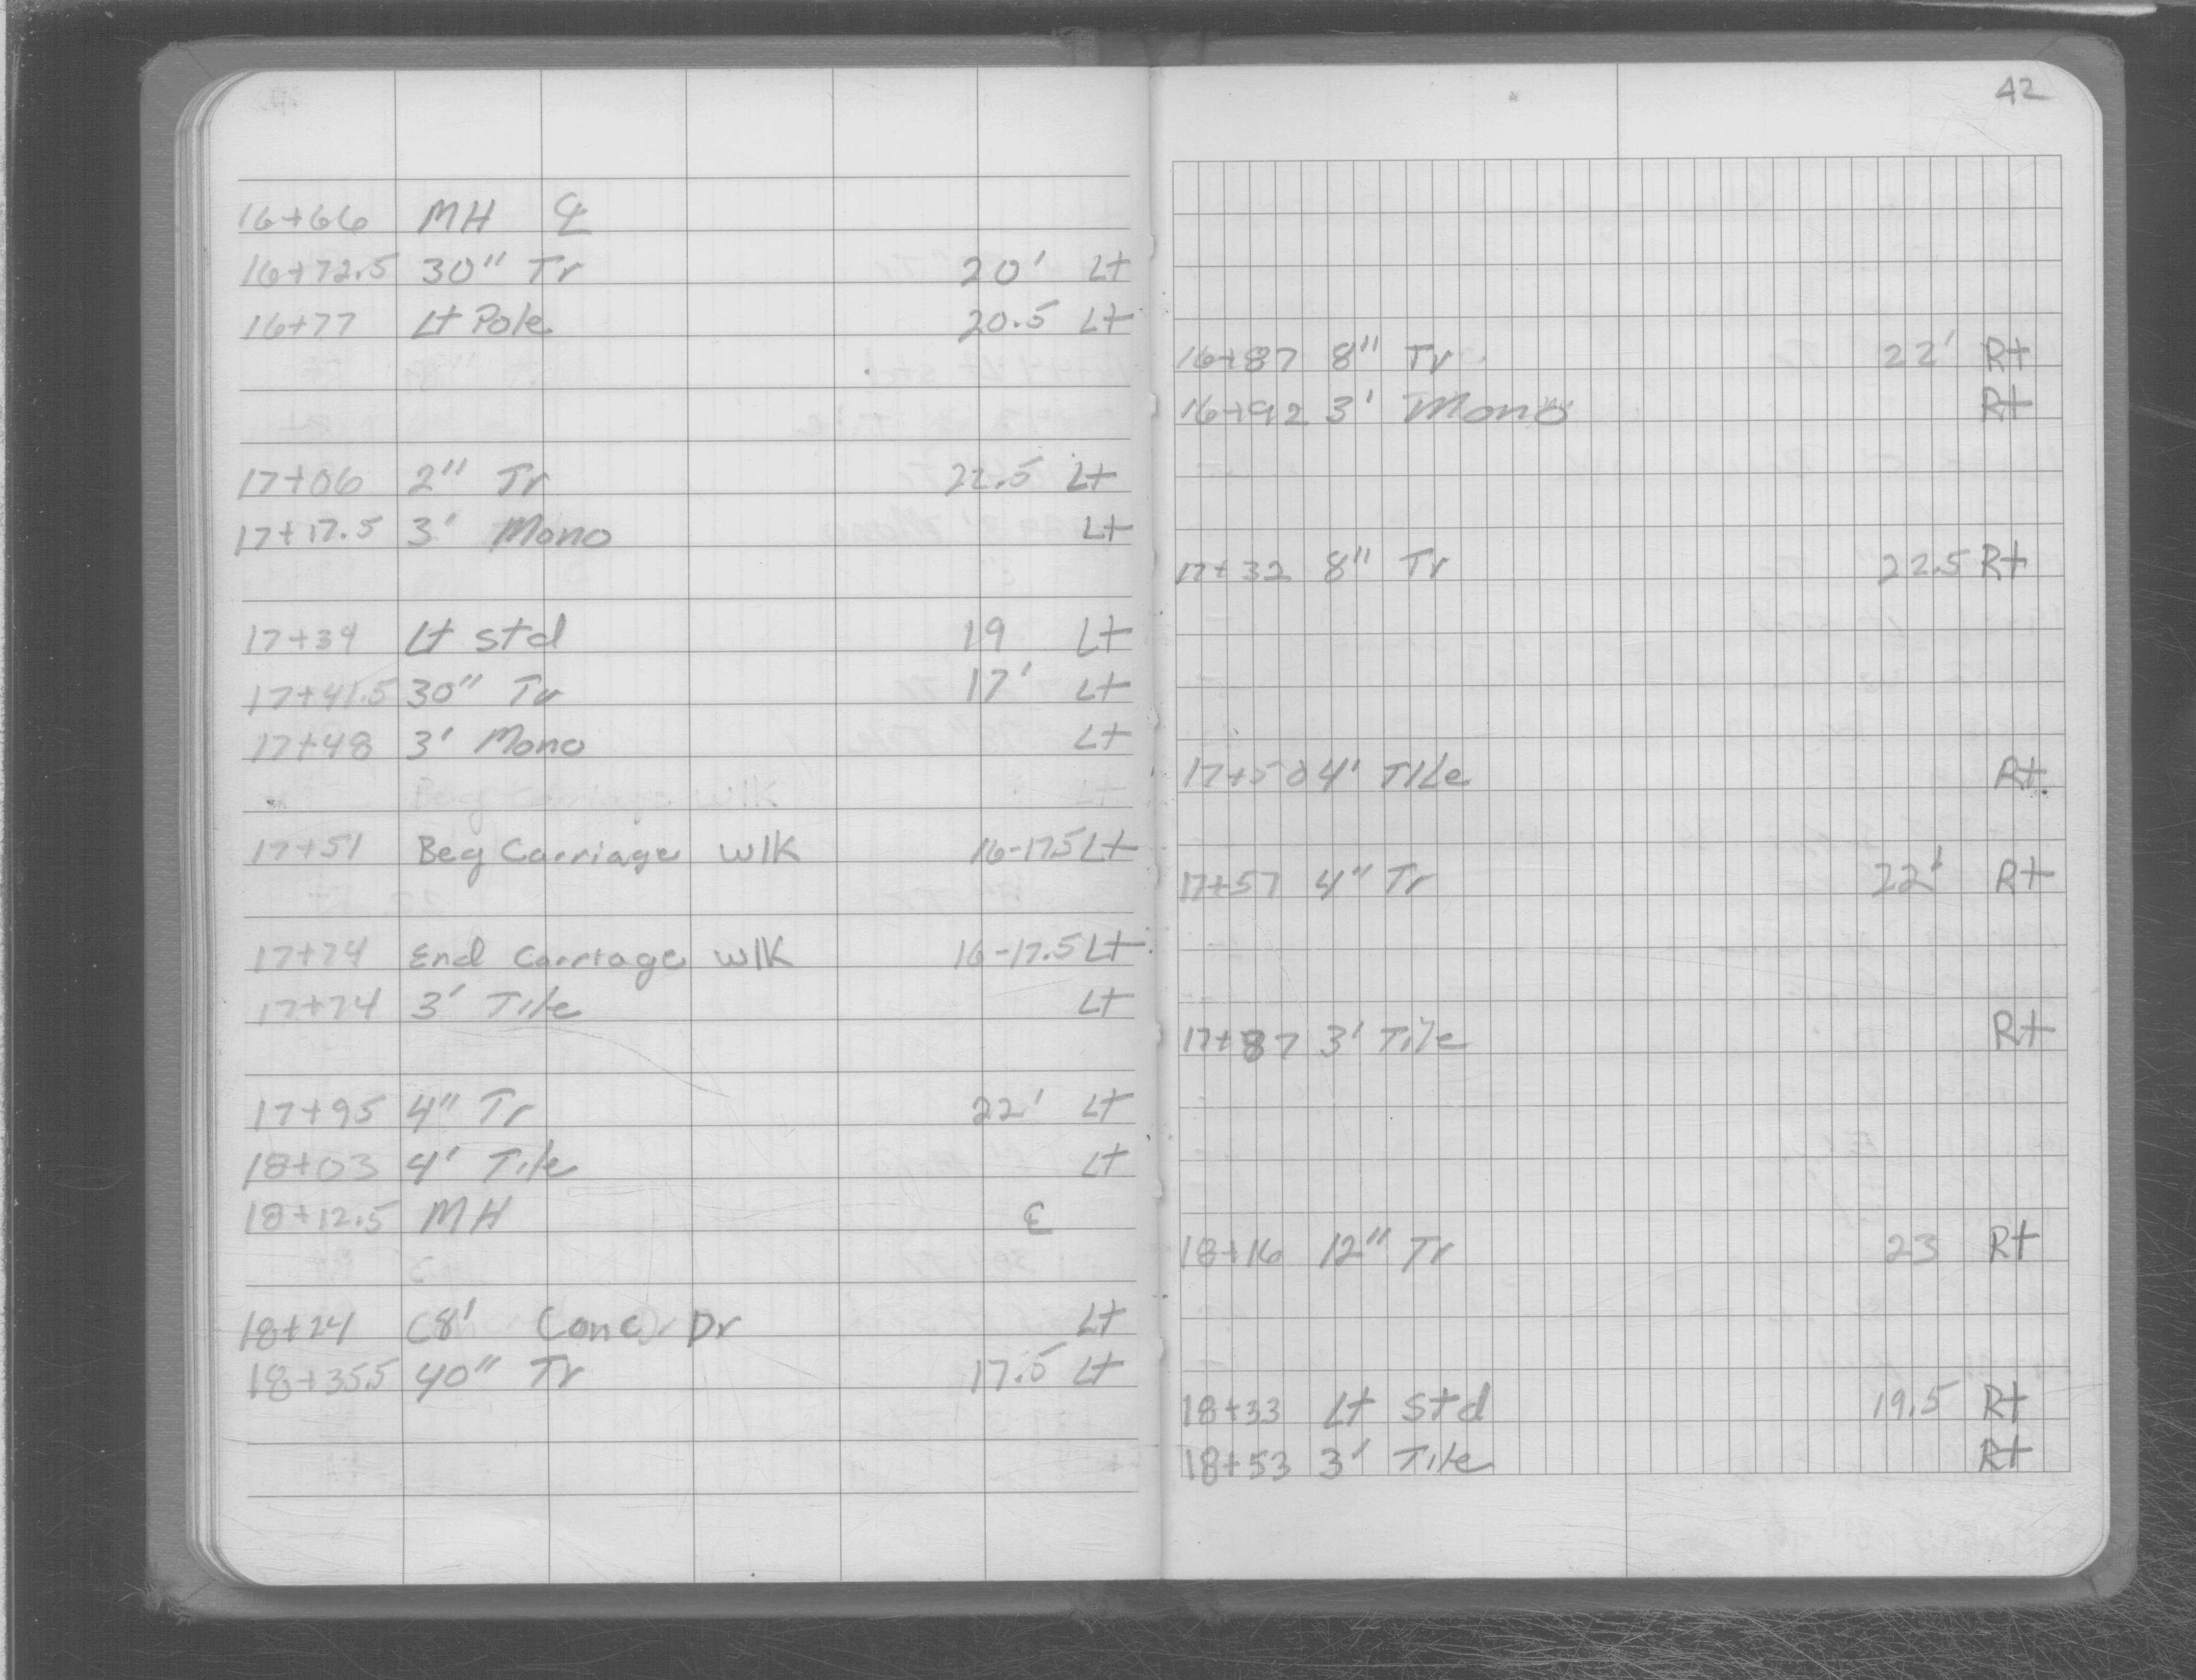 16+66 MH ℄
16+72.5 30" Tr 20' Lt
16+77 Lt Pole 20.5 Lt
17+06 2" Tr 22.5 Lt
17+17.5 3' Mono Lt
17+39 Lt std 19 Lt
17+41.5 30" Tr 17' Lt
17+48 3' Mono Lt
Beg Carriage wlk Lt
17+51 Beg Carriage wlk 16-17.5 Lt
17+74 End Carriage wlk 16-17.5 Lt
17+74 3' Tile Lt
17+95 4" Tr 22' Lt
18+03 4' Tile Lt
18+12.5 MH ℄
18+24 C8' Conc Dr Lt
18+35.5 40" Tr 17.5 Lt
42
16+87 8" Tr 22' Rt
16+92 3' Mono Rt
17+32 8" Tr 22.5 Rt
17+50 4' Tile Rt
17+57 4" Tr 22' Rt
17+87 3' Tile Rt
18+16 12" Tr 23 Rt
18+33 Lt std 19.5 Rt
18+53 3' Tile Rt